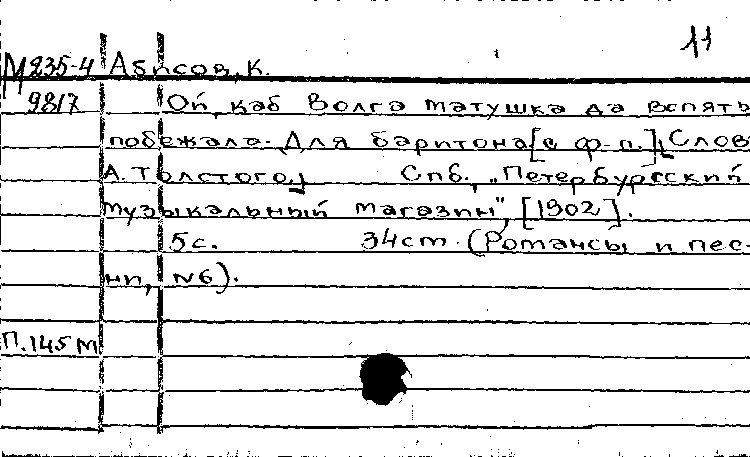 11
М235-4 Абисов, К.
9817 Ой, каб Волга матушка да вспять
побежала. Для баритона [с ф-п.], Слов
А. Толстого.
Спб., "Петербургский
музыкальный магазин", [1902].
5с. 34см. (Романсы и пес-
ни, №6).
П.145М